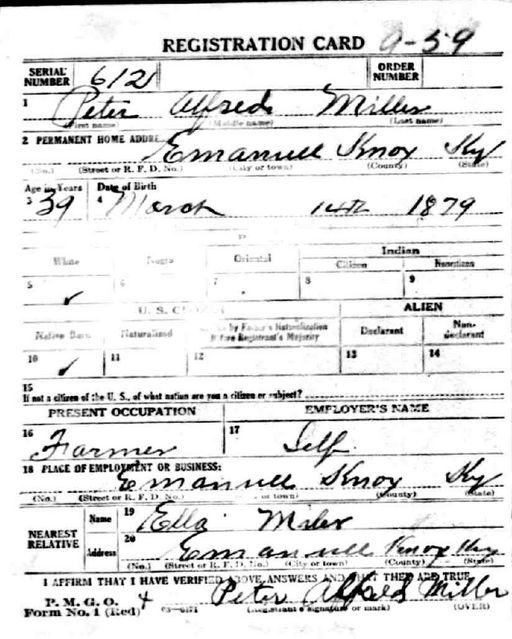 REGISTRATION CARD 9-59
SERIAL NUMBER 612 ORDER NUMBER
1 Peter Alfred Miller
(First name) (Middle name) (Last name)
2 PERMANENT HOME ADDRE
Emanuell Knox Ky
(No.) (Street or R. F. D. No.) (City or town) (County) (State)
Age in Years Date of Birth
3 39 4 March 14th 1879
Indian
White Negro Oriental Citizen Noncitizen
5 ✓ 6 7 8 9
U. S. C ALIEN
Native Born Naturalized by Father's Naturalization Before Registrant's Majority Declarant Non-declarant
10 ✓ 11 12 13 14
15
If not a citizen of the U. S., of what nation are you a citizen or subject?
PRESENT OCCUPATION EMPLOYER'S NAME
16 Farmer 17 Self
18 PLACE OF EMPLOYMENT OR BUSINESS:
Emanuell Knox Ky
(No.) (Street or R. F. D. No.) or town) (County) (State)
NEAREST RELATIVE Name 19 Ella Miler
Address 20 Emanuell Knox Ky
(No.) (Street or R. F. D. No.) (City or town) (County) (State)
I AFFIRM THAT I HAVE VERIFIED ABOVE ANSWERS AND THAT THEY ARE TRUE
P. M. G. O.
Form No. 1 (Red) Peter Alfred Miller
(Registrant's signature or mark) (OVER)